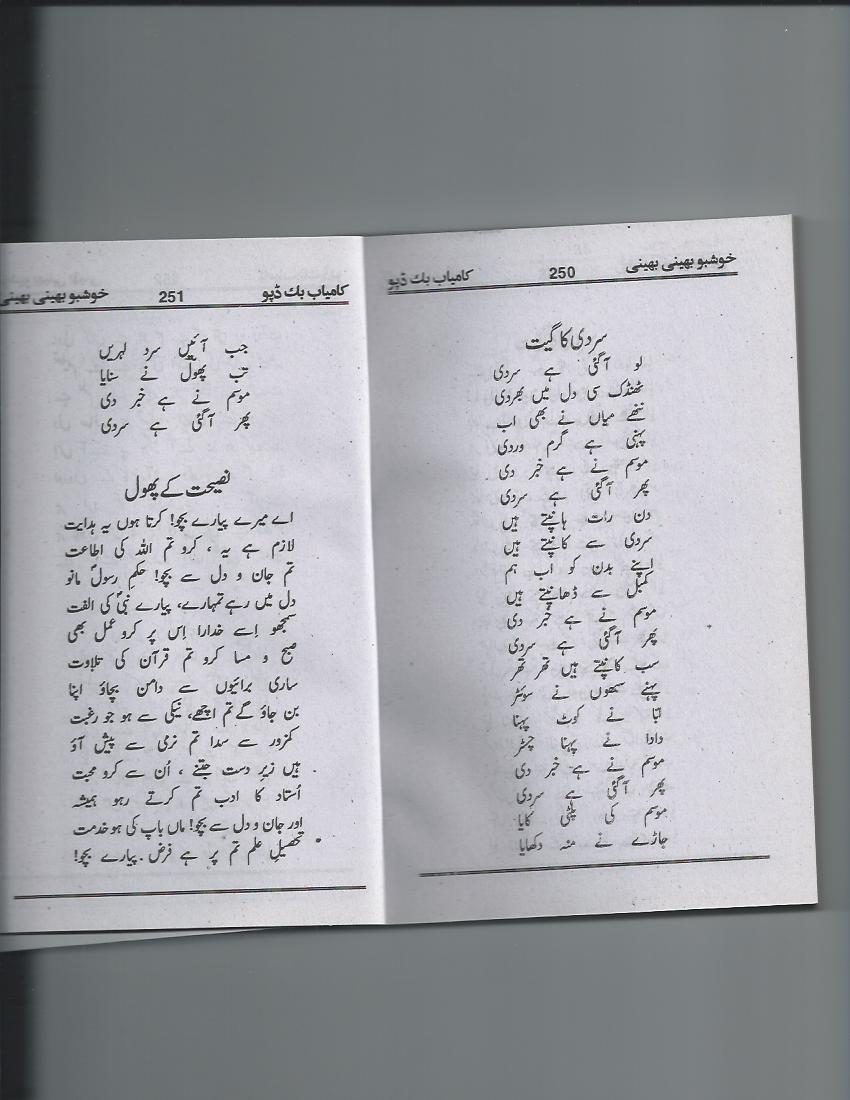 خوشبو بھینی بھینی 250 کامیاب بک ڈپو
سردی کا گیت
لو آگئی ہے سردی
ٹھنڈک سی دل میں بھردی
ننھے میاں نے بھی اب
پہنی ہے گرم وردی
موسم نے ہے خبر دی
پھر آگئی ہے سردی
دن رات ہانپتے ہیں
سردی سے کانپتے ہیں
اپنے بدن کو اب ہم
کمبل سے ڈھانپتے ہیں
موسم نے ہے خبر دی
پھر آگئی ہے سردی
سب کانپتے ہیں تھر تھر
پہنے سبھوں نے سوئٹر
ابّا نے کوٹ پہنا
دادا نے پہنا چسٹر
موسم نے ہے خبر دی
پھر آگئی ہے سردی
موسم کی پلٹی کایا
جاڑے نے منہ دکھایا
کامیاب بک ڈپو 251 خوشبو بھینی بھینی
جب آئیں سرد لہریں
تب پھول نے سنایا
موسم نے ہے خبر دی
پھر آگئی ہے سردی
نصیحت کے پھول
اے میرے پیارے بچو! کرتا ہوں یہ ہدایت
لازم ہے یہ ، کرو تم اللہ کی اطاعت
تم جان و دل سے بچو! حکمِ رسولؐ مانو
دل میں رہے تمہارے، پیارے نبیؐ کی الفت
سمجھو اِسے خدارا اِس پر کرو عمل بھی
صبح و مسا کرو تم قرآن کی تلاوت
ساری برائیوں سے دامن بچاؤ اپنا
بن جاؤ گے تم اچھے، نیکی سے ہو جو رغبت
کمزور سے سدا تم نرمی سے پیش آؤ
ہیں زیرِ دست جتنے ، اُن سے کرو محبت
اُستاد کا ادب تم کرتے رہو ہمیشہ
اور جان و دل سے بچو! ماں باپ کی ہو خدمت
تحصیلِ علم تم پر ہے فرض ۔ پیارے بچو!